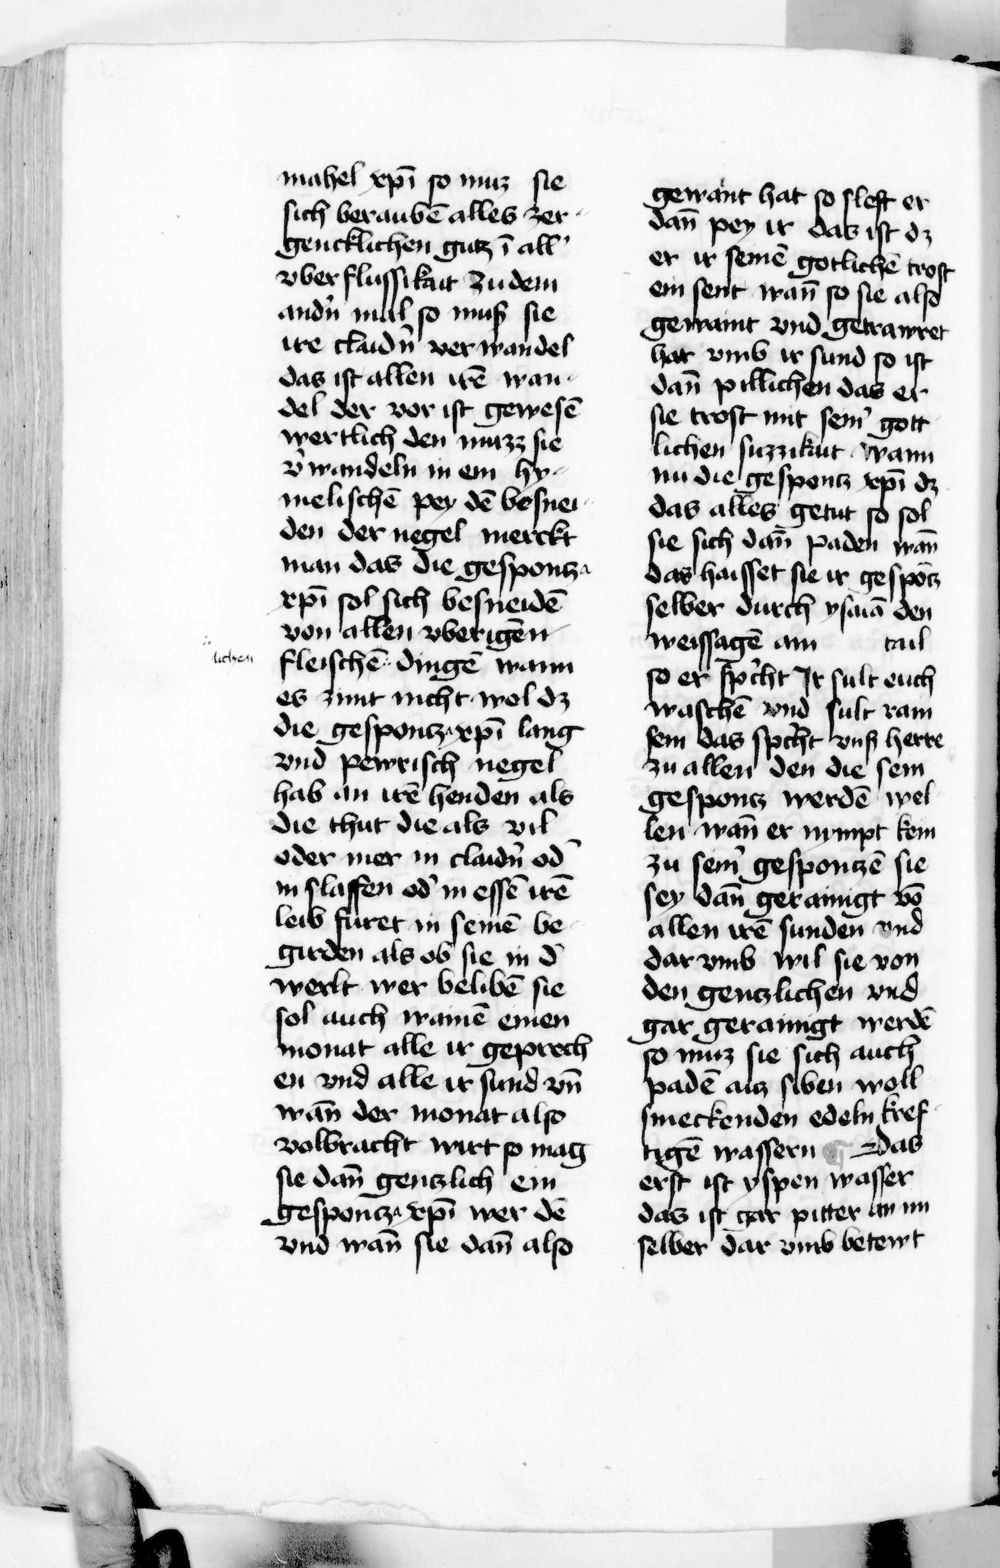 mahel xpī so muz sie
sich beraubē alles zer-
gencklichen gutz ī all'
vberflussikait Zu dem
andn̄ mal so muß sie
ire claidn̄ verwandel
das ist allen irē wan-
del der vor ist gewesē
wertlich den muzz sie
v'wandeln in ein hy-
melischē pey dē besnei-
den der negel merckt
man das die gespontz
xpī sol sich besneidē
von allen vberigen
fleischē dingē wann
lichen
es zimt nicht wol dz
die gespontz xpī lang
vnd pewrisch negel
hab an irē henden als
die thut die als vil
oder mer in claidn̄ od'
in slaffen od' in essē irē
leib furet in seinē be-
girden als ob sie in d'
werlt wer belibē sie
sol auch wainē einen
monat alle ir geprech
en vnd alle ir sund vn̄
wan̄ der monat also
volbracht wirt so mag
sie dan̄ gentzlich ein
gespontz xpī werdē
vnd wan̄ sie dan̄ also
gewant hat so sleft er
dan̄ pey ir das ist dz
er ir seinē gotlichē trost
ein sent wan̄ so sie also
gewaint vnd getrawret
hat vmb ir sund so ist
dan̄ pillichen das er
sie trost mit sein' gott
lichen suzzikait wann
nu die gespontz xpī dz
das alles getut so sol
sie sich dan̄ paden wan̄
das haisset sie ir gespōtz
selber durch ysaiā den
weissagē am tail
so er spricht Ir sult euch
waschē vnd sult rain
sein das spricht vnß herre
zu allen den die sein
gespontz werdē wel
len wan̄ er nympt kein
zu sein' gespontzē sie
sey dan̄ gerainigt vō
allen irē sunden vnd
dar vmb wil sie von
den gentzlichen vnd
gar gerainigt werdē
so muz sie sich auch
padē auz siben woll
smeckenden edeln kref
tigē wassern Das
erst ist yspen wasser
das ist gar pitter an im
selber dar vmb betewt